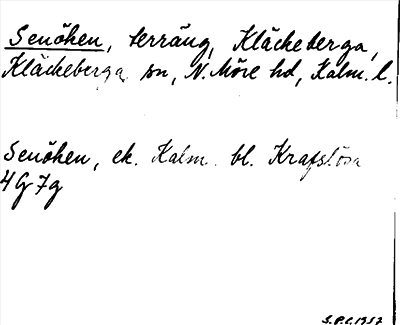 Senöken, terräng, Kläckeberga,
Kläckeberga sn, N. Möre hd, Kalm. l.
Senöken, ek. Kalm. bl. Krafslösa
4G7g
S.P.C. 1957